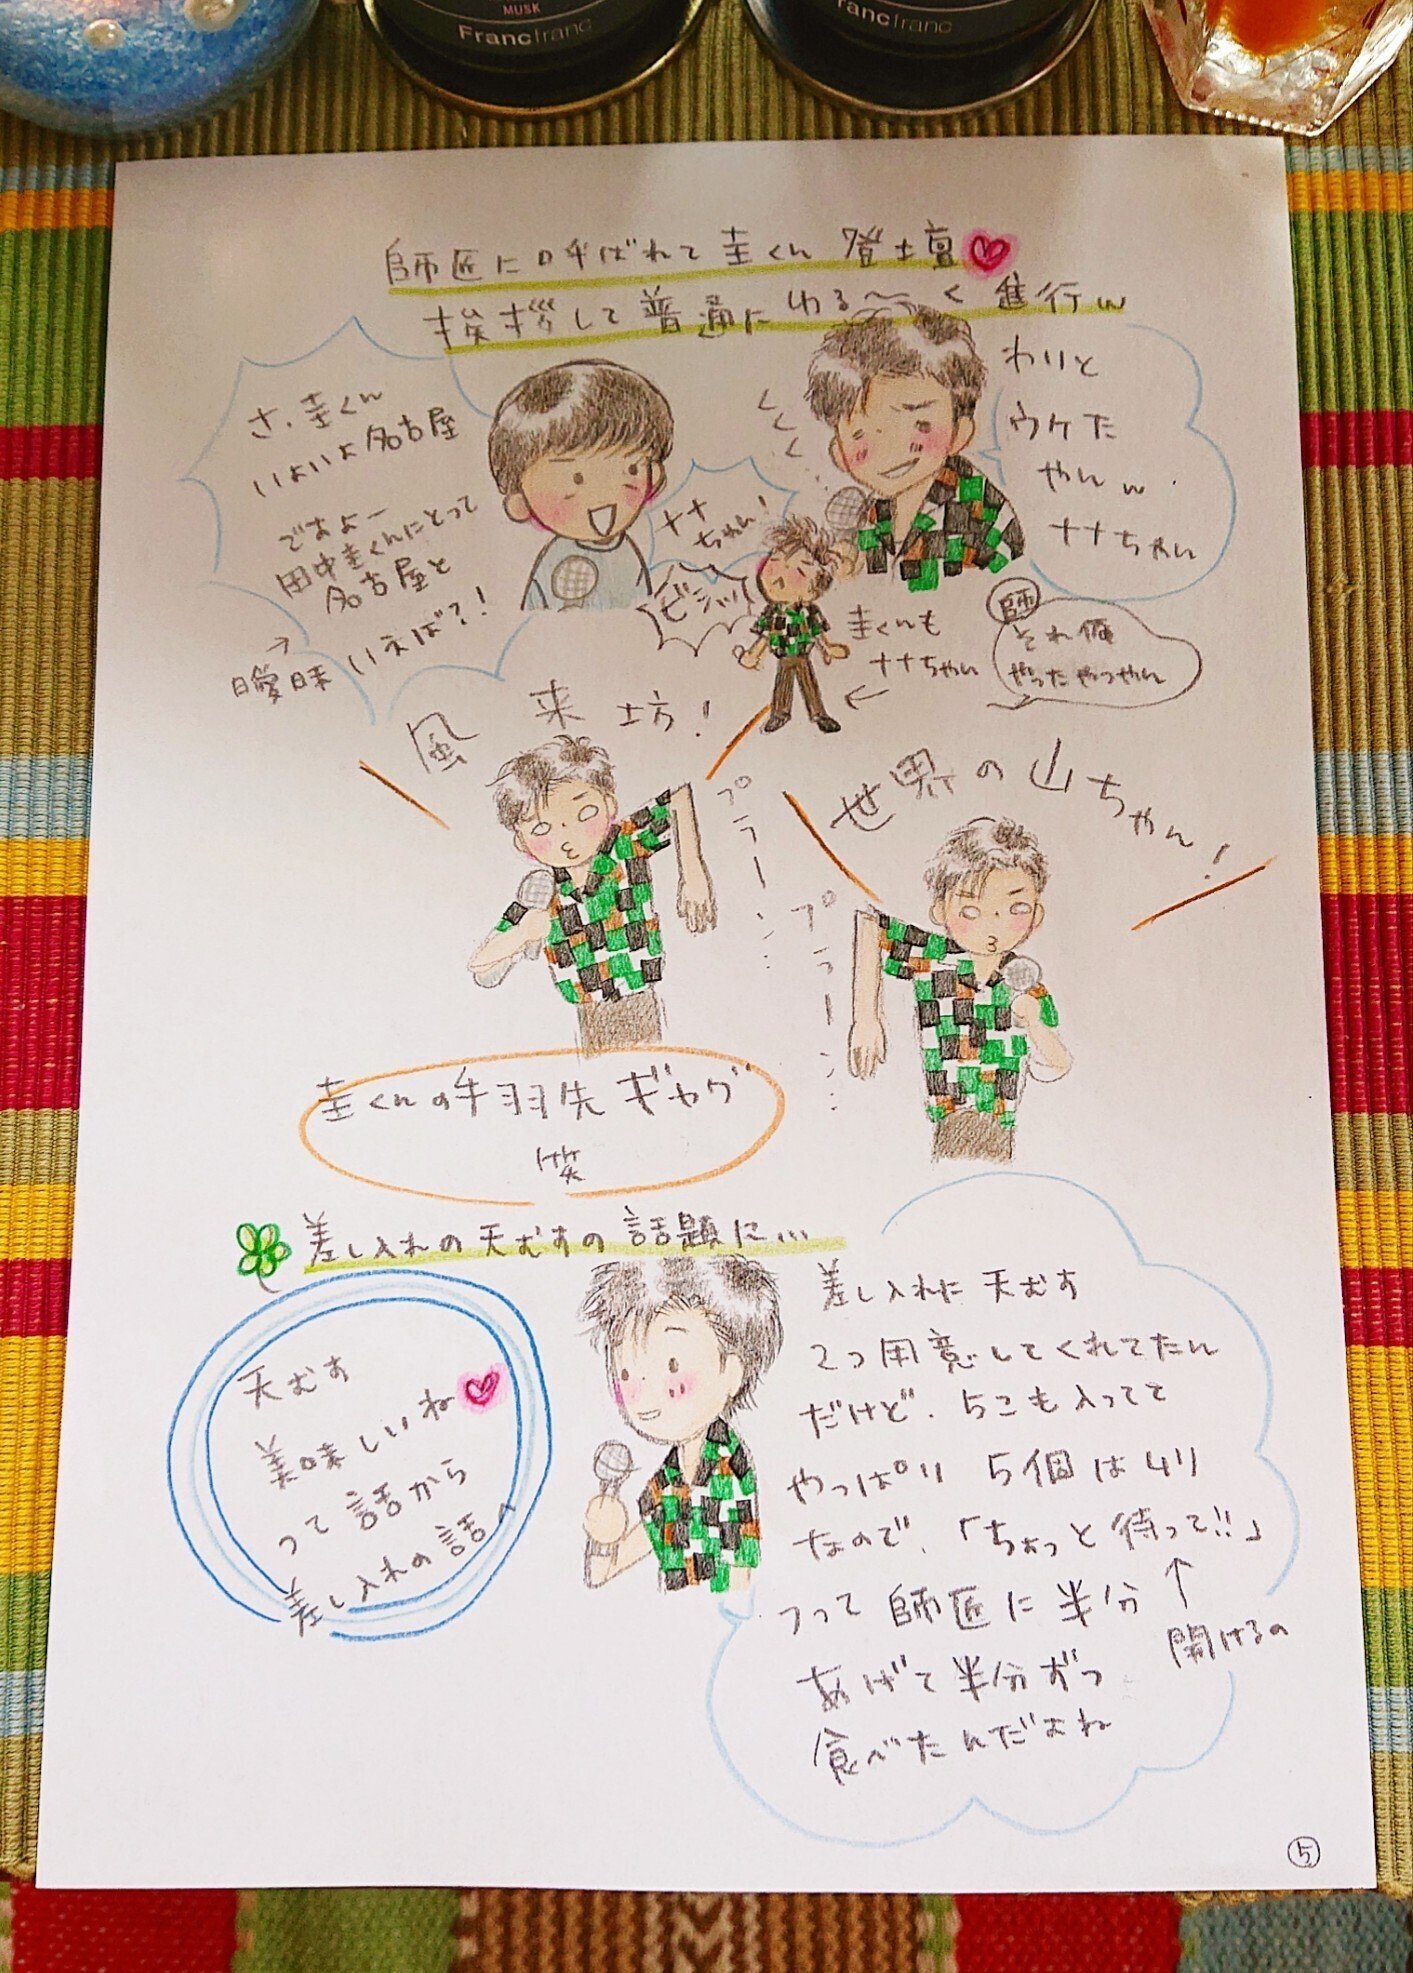 MUSK
Francfranc
francfranc
師匠に呼ばれて圭くん登壇
挨拶して普通にゆる〜く進行w
さ、圭くん
いよいよ名古屋
ですよー
田中圭くんにとって
名古屋と
いえば?!
→
曖昧
ナナ
ちゃん!
ビシッ
くくく...
わりと
ウケた
やんw
ナナちゃん
圭くんも
ナナちゃん
←
師
それ俺
やったやつやん
風来坊!
プラーン...
世界の山ちゃん!
プラーン...
圭くんの手羽先ギャグ
笑
差し入れの天むすの話題に...
天むす
美味しいね
って話から
差し入れの話へ
差し入れに天むす
2つ用意してくれてたん
だけど、5こも入ってて
やっぱり5個はムリ
なので、「ちょっと待って!!」
つって師匠に半分
↑
開けるの
あげて半分ずつ
食べたんだよね
⑤